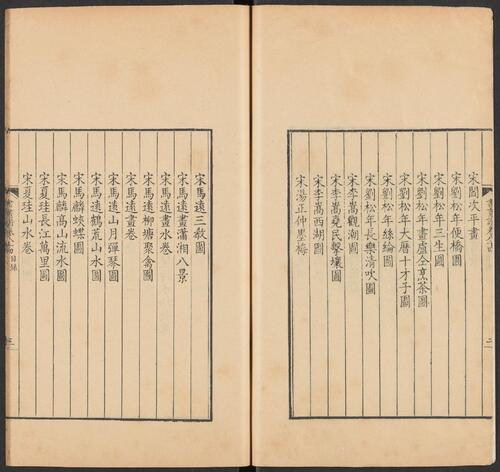 宋閻次平畫
宋劉松年便橋圖
宋劉松年三生圖
宋劉松年畫盧仝烹茶圖
宋劉松年大曆十才子圖
宋劉松年絲綸圖
宋劉松年長樂清吹圖
宋李嵩觀潮圖
宋李嵩堯民擊壤圖
宋李嵩西湖圖
宋湯正仲墨梅
二
宋馬遠三教圖
宋馬遠畫瀟湘八景
宋馬遠畫水卷
宋馬遠柳塘聚禽圖
宋馬遠畫卷
宋馬遠山月彈琴圖
宋馬遠鶴荒山水圖
宋馬麟蛺蝶圖
宋馬麟高山流水圖
宋夏珪長江萬里圖
宋夏珪山水卷
目錄
三